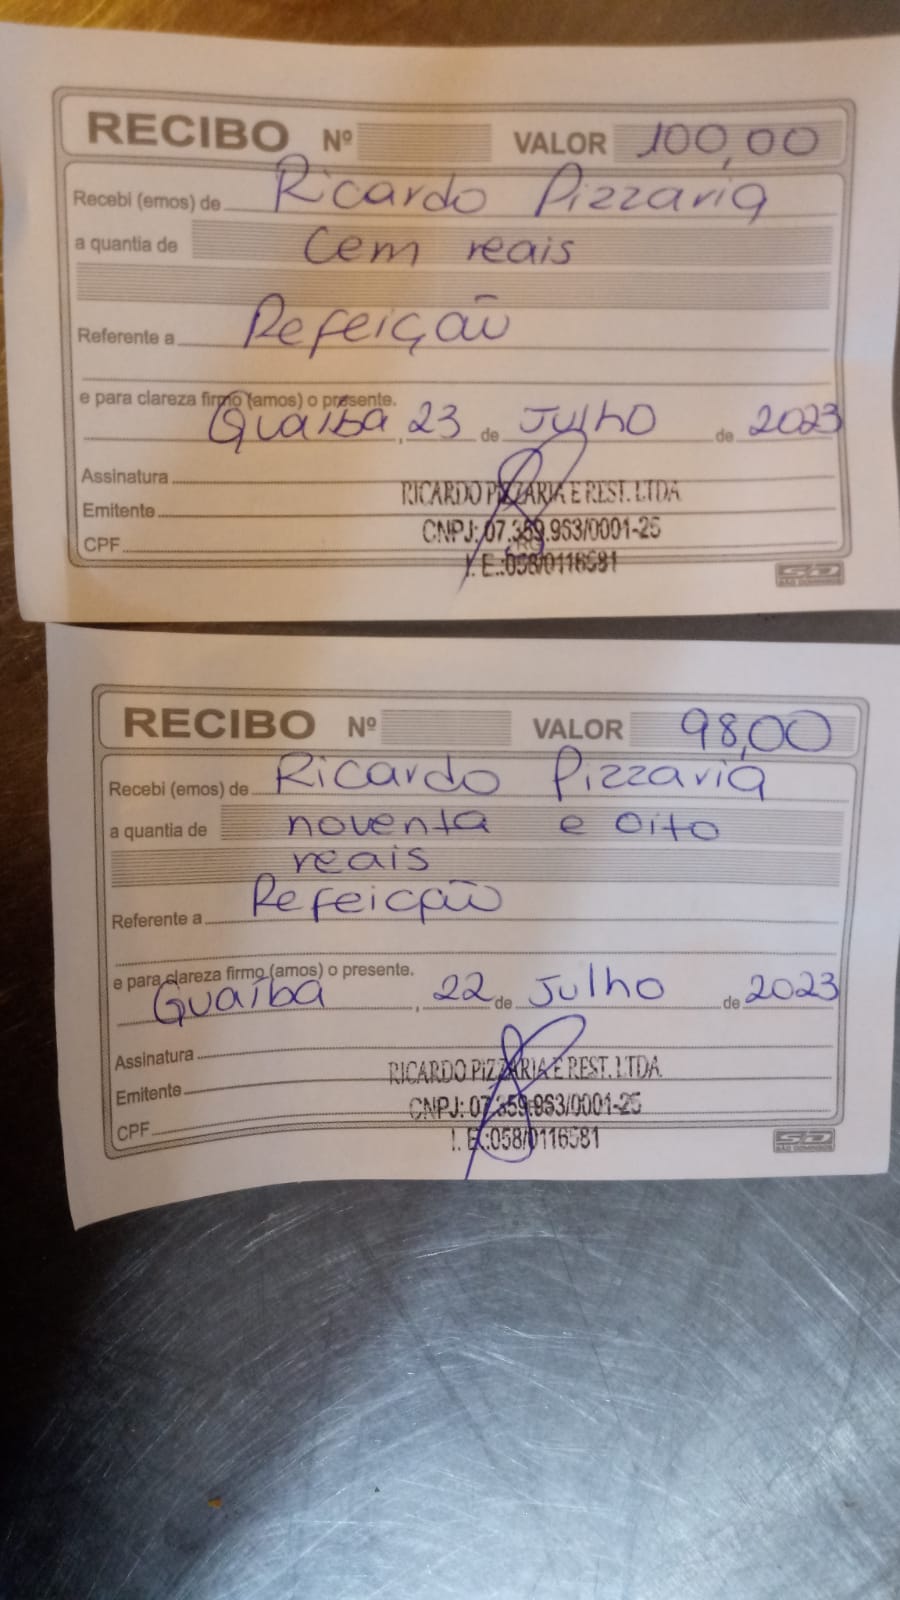 RECIBO Nº VALOR 100,00
Recebi (emos) de Ricardo Pizzaria
a quantia de Cem reais
Referente a Refeição
e para clareza firmo (amos) o presente.
Guaíba, 23 de Julho de 2023
Assinatura
RICARDO PIZZARIA E REST. LTDA
Emitente
CNPJ: 07.359.953/0001-25
CPF
I. E.:058/0116581
RECIBO Nº VALOR 98,00
Recebi (emos) de Ricardo Pizzaria
a quantia de noventa e oito
reais
Referente a Refeicção
e para clareza firmo (amos) o presente.
Guaíba, 22 de Julho de 2023
Assinatura
RICARDO PIZZARIA E REST. LTDA
Emitente
CNPJ: 07.359.953/0001-25
CPF
I. E.:058/0116581